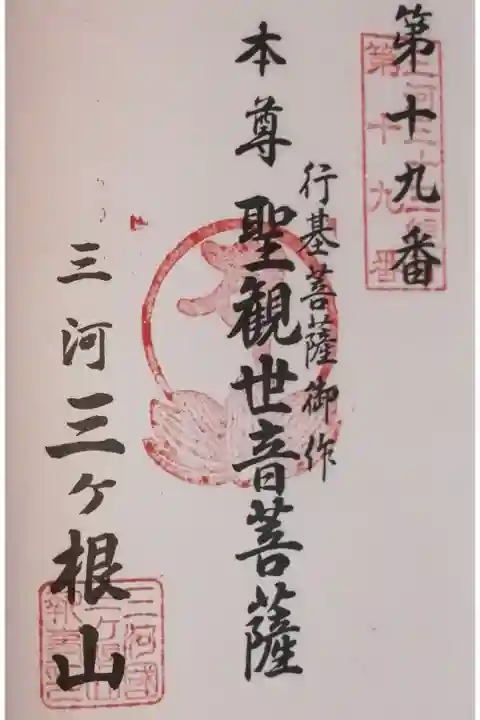 第十九番
第十九番
行基菩薩御作
本尊 聖観世音菩薩
三河 三ヶ根山